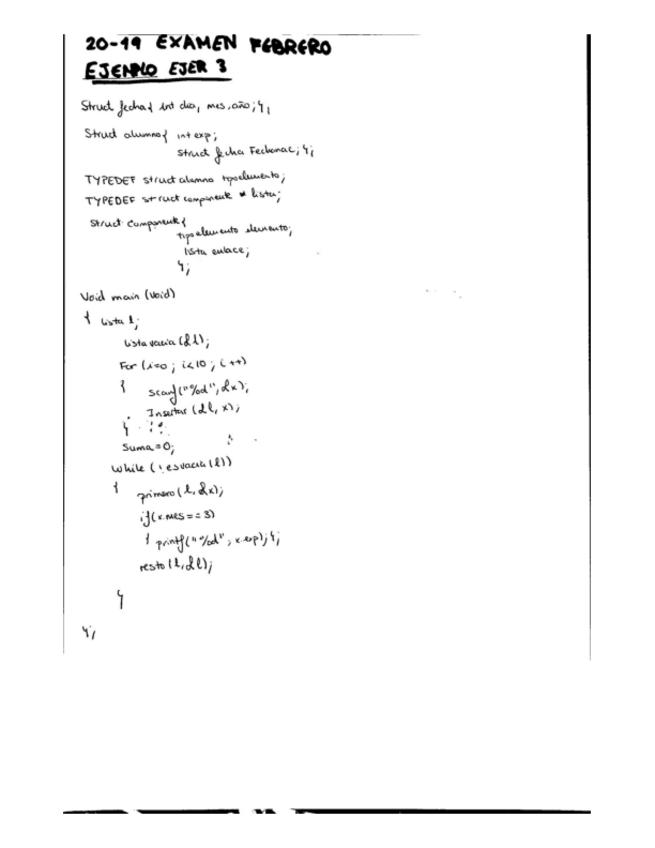 20-19 EXAMEN FEBRERO
EJEMPLO EJER 3
Struct fecha{ int dia, mes, año; };
Struct alumno{ int exp;
struct fecha Fechanac; };
TYPEDEF struct alumno tipoelemento;
TYPEDEF struct componente * lista;
Struct Componente{
tipoelemento elemento;
lista enlace;
};
Void main (void)
{ lista l;
listavacia (&l);
For (i=0; i<10; i++)
{ scanf("%d", &x);
Insertar (&l, x);
}
Suma=0;
While (!esvacia(l))
{ primero(l, &x);
if(x.mes==3)
{ printf("%d", x.exp); };
resto(l, &l);
}
};